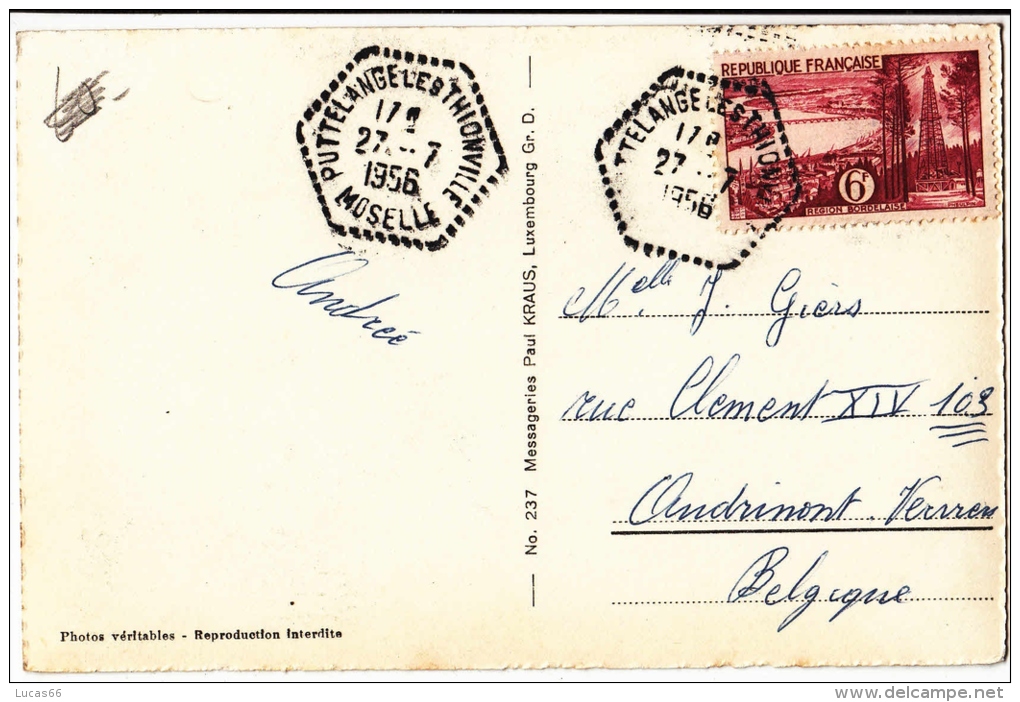 PUTTELANGE LES THIONVILLE
17
27 -7
1956
MOSELLE
TTELANGE LES THIONV
17
27 -7
1956
REPUBLIQUE FRANÇAISE
6F
REGION BORDELAISE
Andrée
No. 237 Messageries Paul KRAUS, Luxembourg Gr. D.
Melle. J. Gièrs
rue Clement XIV 103
Andrimont Verviers
Belgique
Photos véritables - Reproduction Interdite
Lucas66
www.delcampe.net